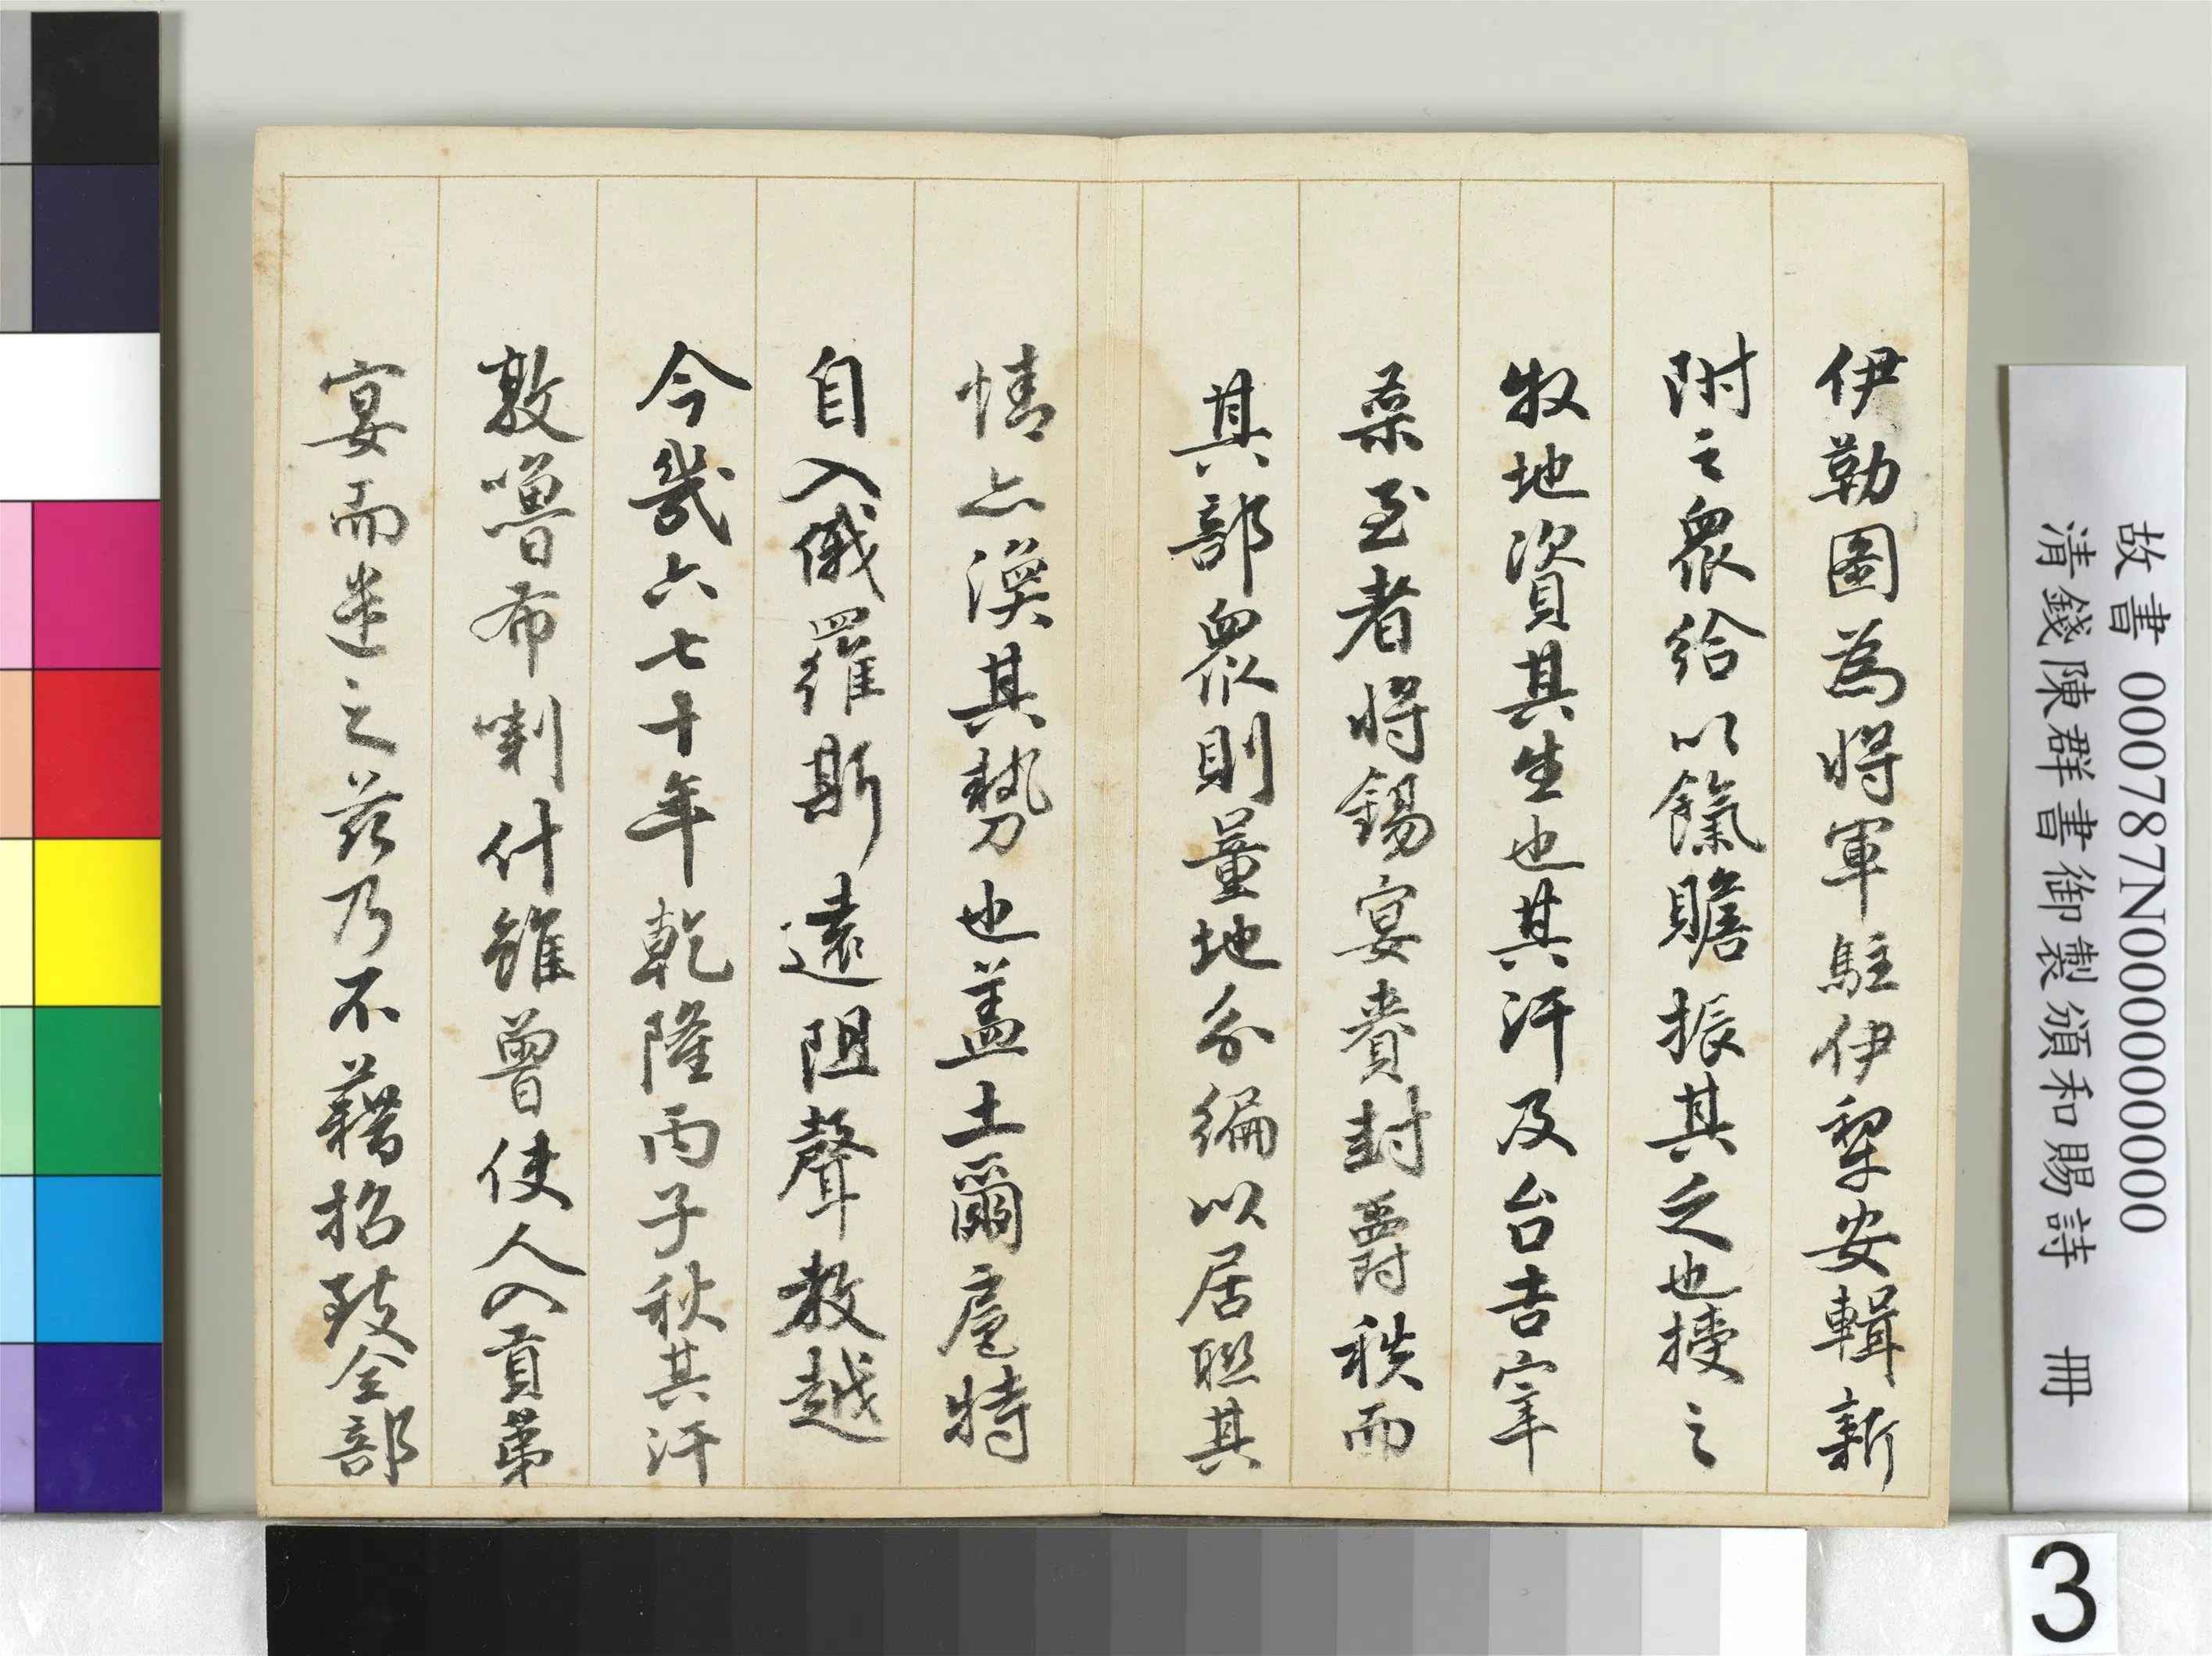 伊勒圖為將軍駐伊犂安輯新
附之衆給以餼贍振其乏也授之
牧地資其生也其汗及台吉宰
桑至者將錫宴賚封爵秩而
其部衆則量地分編以居聯其
情亦渙其勢也盖土爾扈特
自入俄羅斯遠阻聲教越
今幾六七十年乾隆丙子秋其汗
敦嚕布喇什雖曾使人入貢第
宴而遣之茲乃不藉招致全部
故書 000787N000000000
清錢陳群書御製頒和賜詩 冊
3